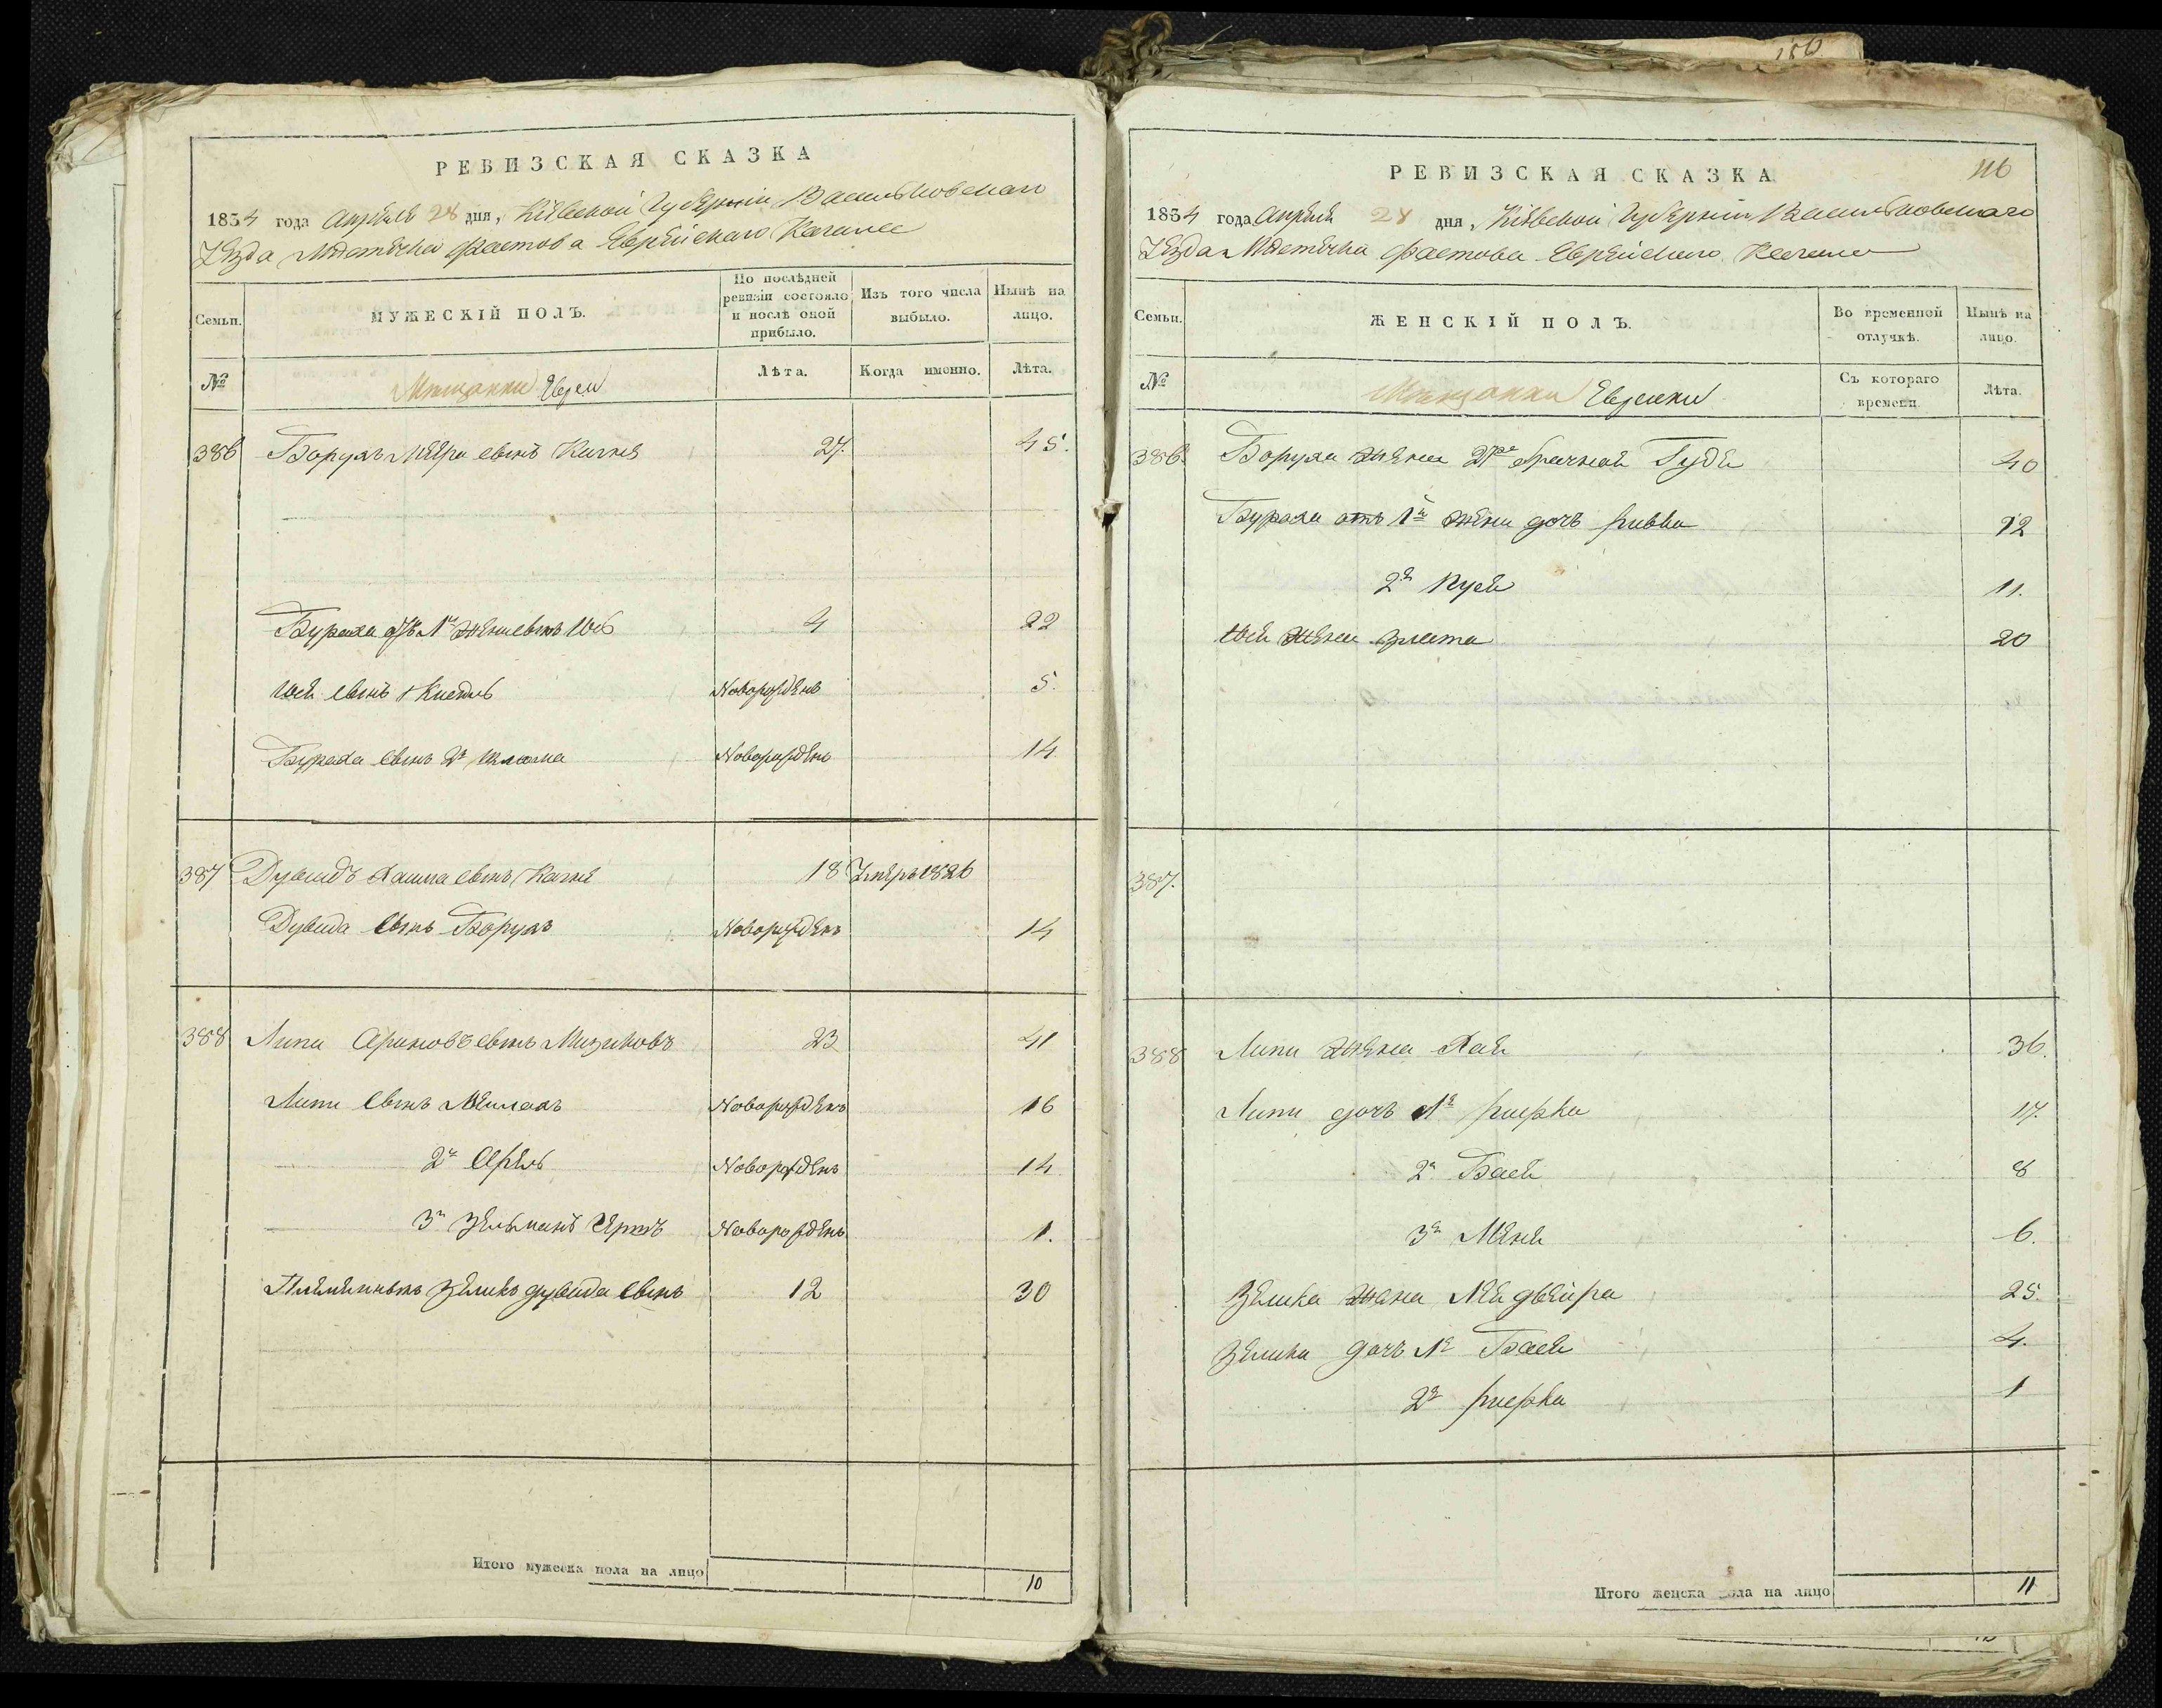 156
РЕВИЗСКАЯ СКАЗКА
1854 года Апреля 28 дня, Кіевской Губерніи Васильковского
Уезда Местечка Фастова Еврейскаго Кагала
Семьи.
МУЖЕСКІЙ ПОЛЪ.
По послѣдней ревизіи состояло и послѣ оной прибыло.
Изъ того числа выбыло.
Нынѣ на лицо.
№
Мещанки Евреи
Лѣта.
Когда именно.
Лѣта.
386 Борухъ Меера сынъ 27. 45.
Бураха отъ 1й жены сынъ Іось 4 22
Іося сынъ Новорожденъ 5.
Бураха сынъ 2й Шлома Новорожденъ 14
387 Дувидъ сынъ 18 Умеръ 1826
Дувида сынъ Борухъ Новорожденъ 14
388 Липа сынъ Мизиковъ 23 41
Липи сынъ Новорожденъ 16
2й Арель Новорожденъ 14
3й Зельманъ Новорожденъ 1.
Племянникъ Зеликъ Дувида сынъ 12 30
Итого мужеска пола на лицо 10
116
РЕВИЗСКАЯ СКАЗКА
1854 года Апреля 28 дня, Кіевской Губерніи Васильковского
Уезда Местечка Фастова Еврейскаго Кагала
Семьи.
ЖЕНСКІЙ ПОЛЪ.
Во временной отлучкѣ.
Нынѣ на лицо.
№
Мещанки Еврейки
Съ котораго времени.
Лѣта.
386. Боруха жена 2 брачная Гудя 40
Бураха отъ 1й жены дочь Ривка 12
2я Пуся 11.
Іося жена Злата 20
387.
388 Липи жена Хая 36.
Липи дочь 1я 17.
2я Бася 8
3я Меня 6.
Зелика жена Двейра 25.
Зелика дочь 1я Бася 4.
2я 1
Итого женска пола на лицо 11